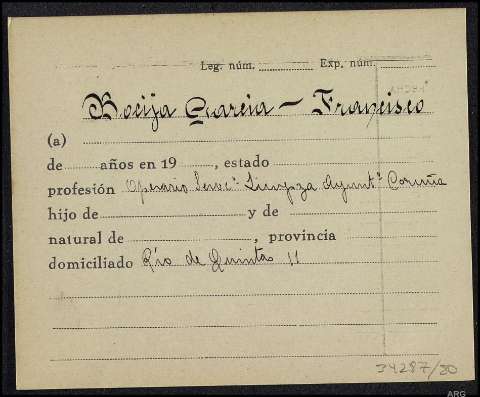 Leg. núm. Exp. núm.
Bocija Garcia - Francisco
(a)
de años en 19 , estado
profesión Operario Servº Limpza Ayuntº Coruña
hijo de y de
natural de , provincia
domiciliado Río de Quintas 11
34287/20
ARG